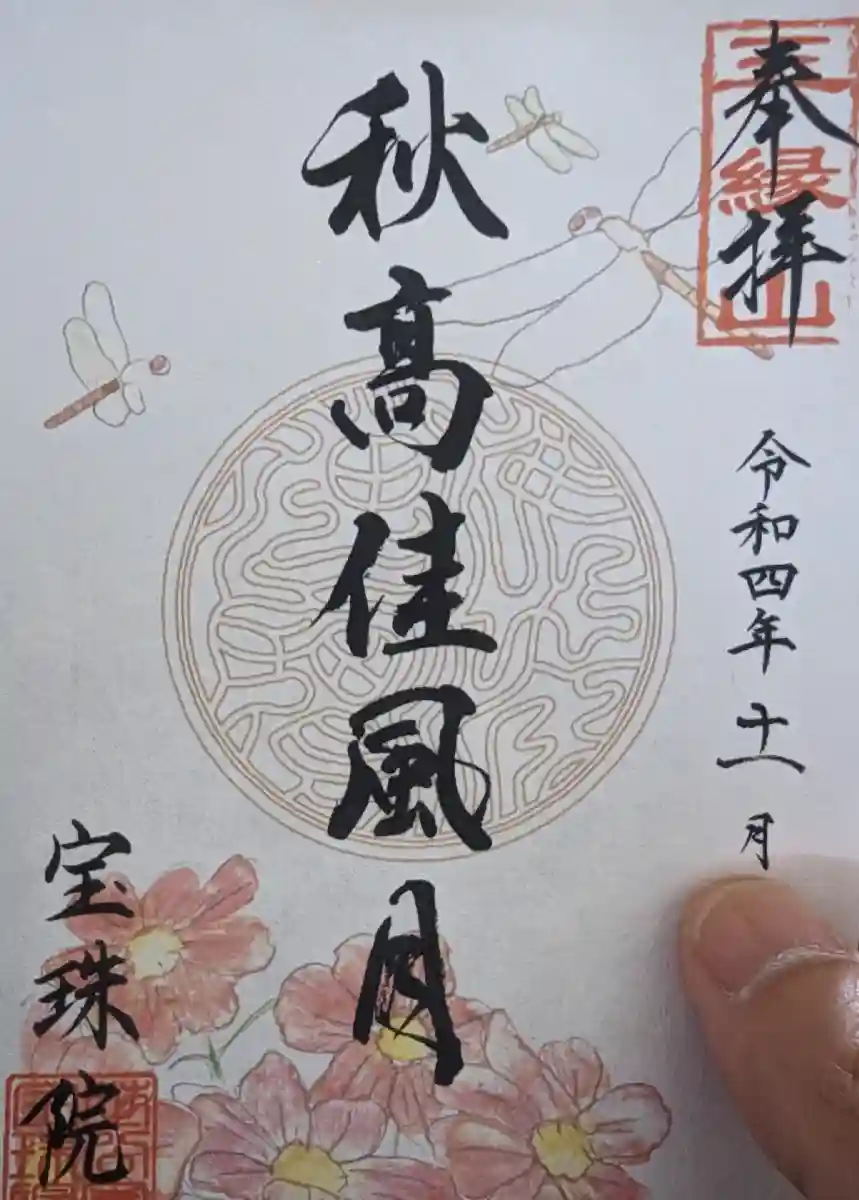 奉拝
三縁山
令和四年十一月
秋高佳風月
宝珠院